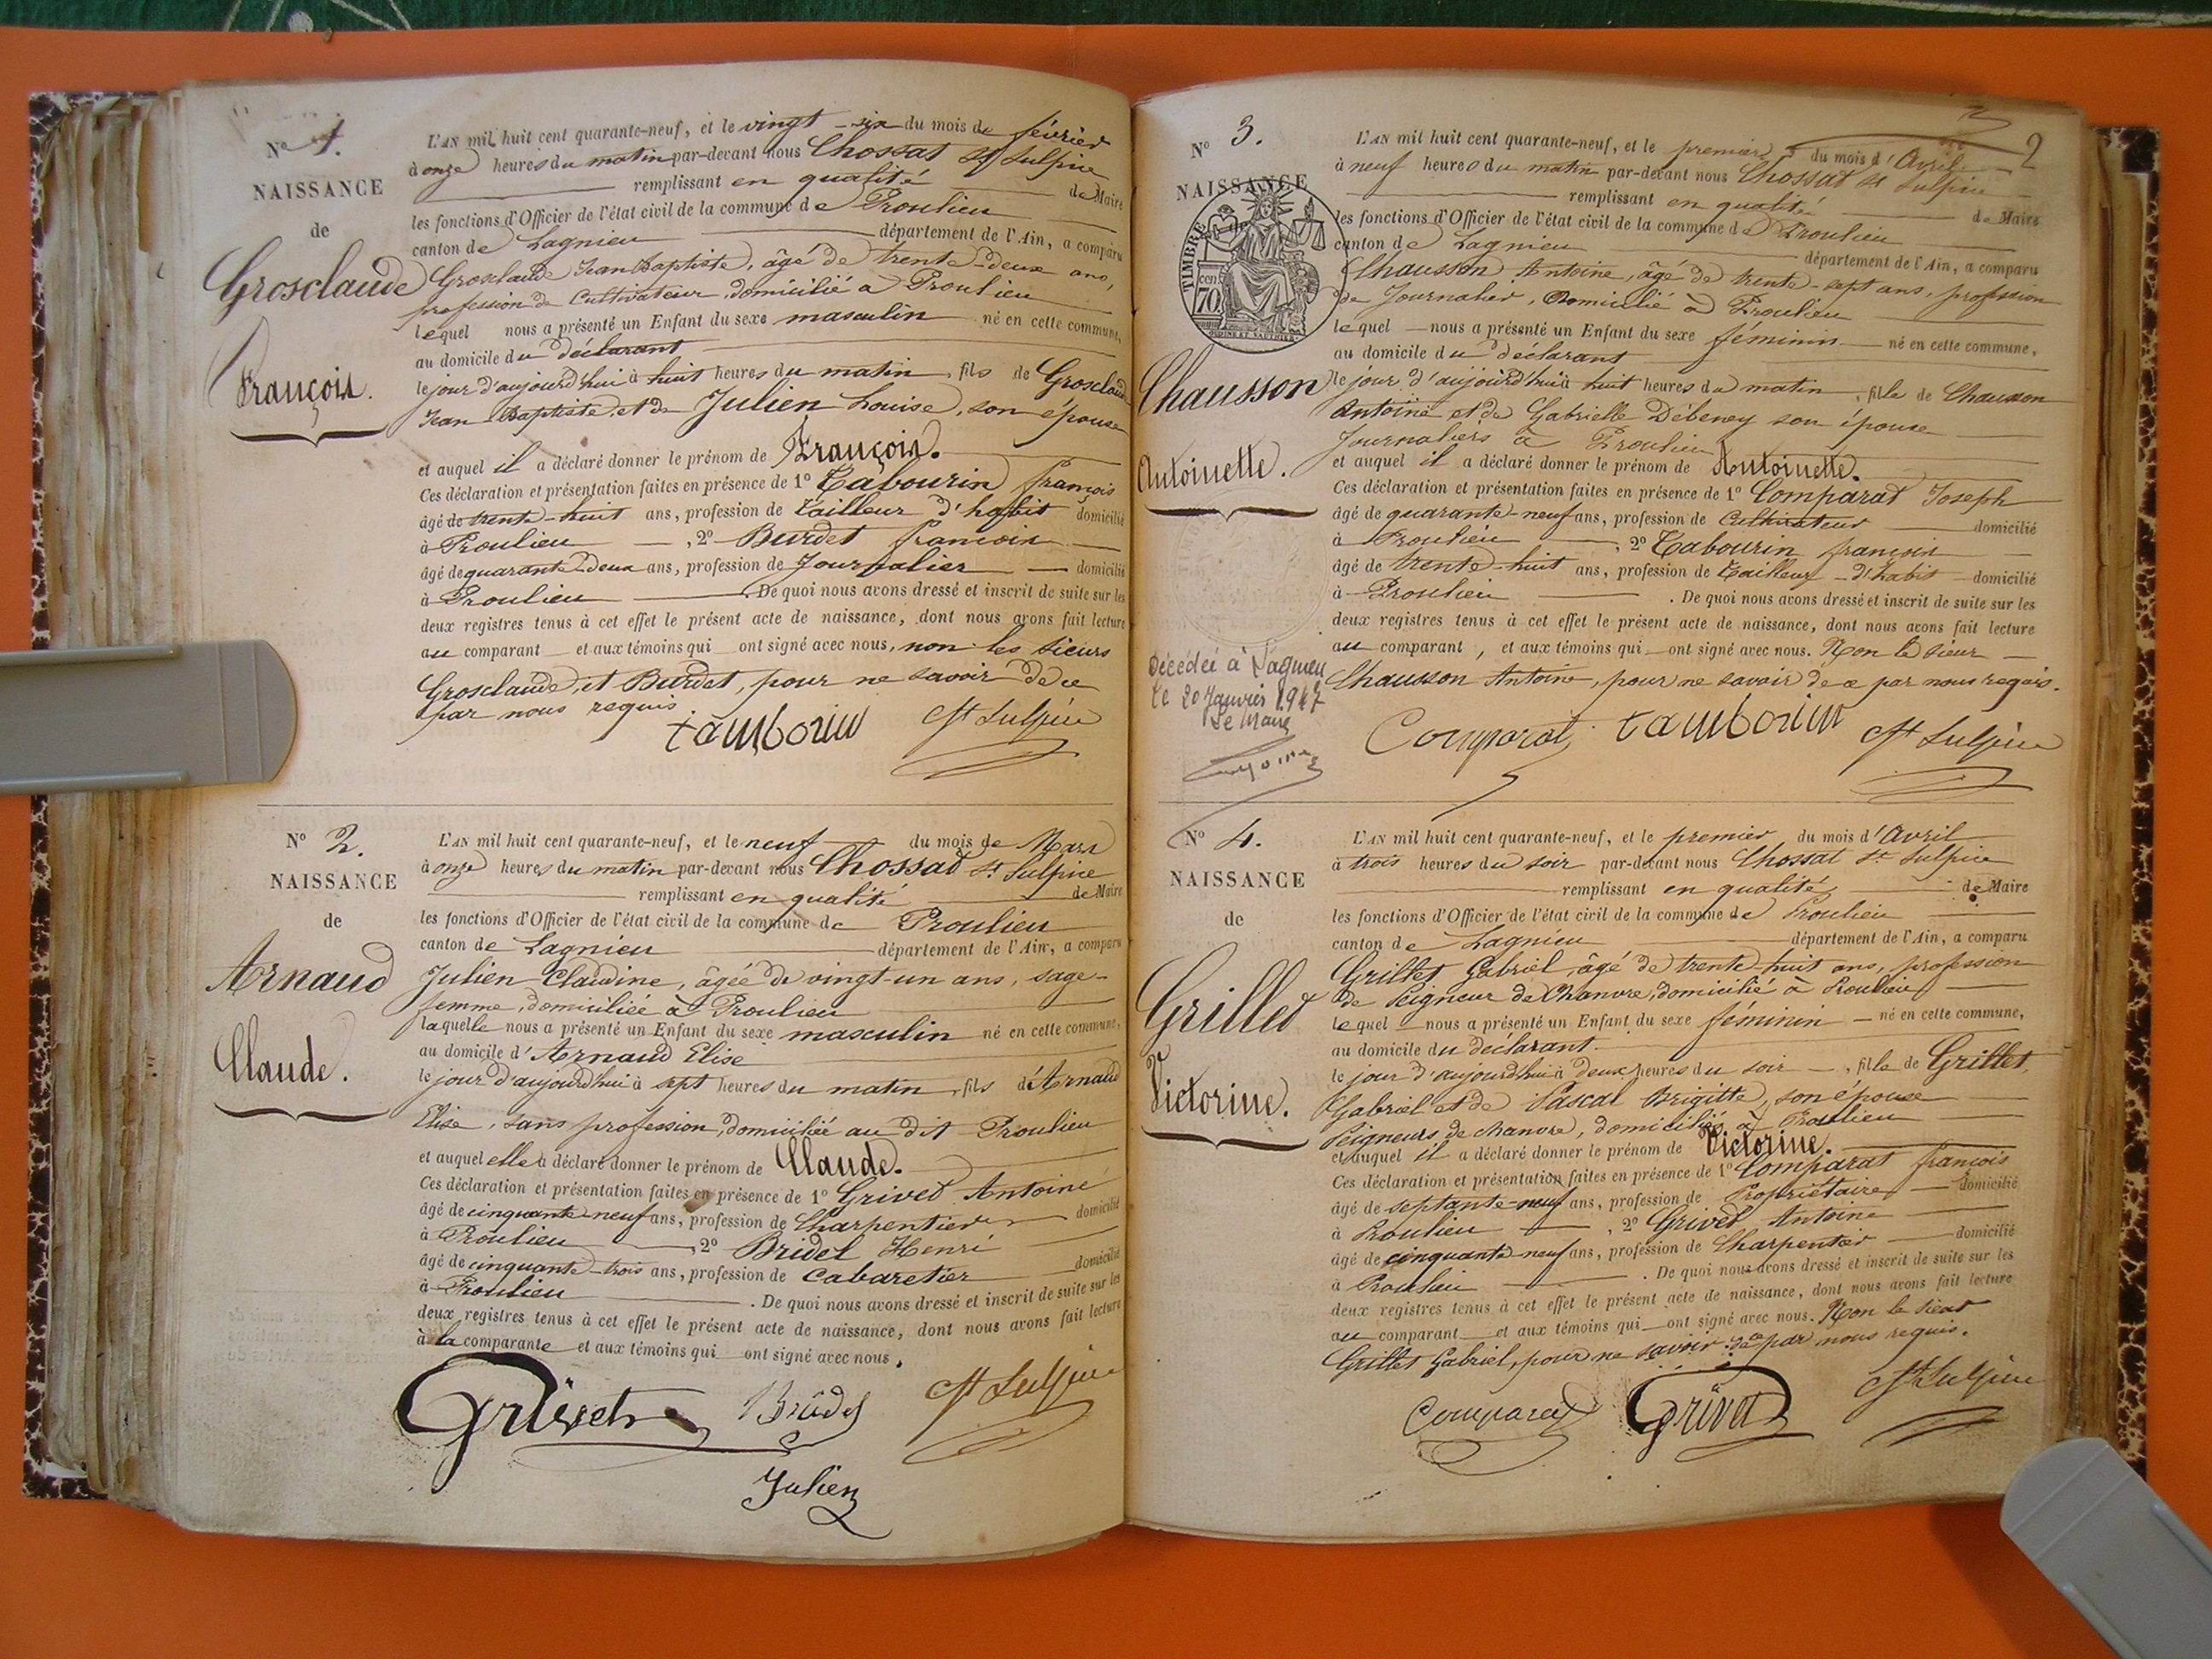 Nº 1.
NAISSANCE
de
Grosclaude
François.
L'AN mil huit cent quarante-neuf, et le vingt-six du mois de février
à onze heures du matin par-devant nous Chossat St Sulpice
remplissant en qualité de Maire
les fonctions d'Officier de l'état civil de la commune de Proulieu
canton de Lagnieu département de l'Ain, a comparu
Grosclaude Jean Baptiste, âgé de trente-deux ans,
profession de Cultivateur, domicilié à Proulieu
lequel nous a présenté un Enfant du sexe masculin né en cette commune,
au domicile du déclarant
le jour d'aujourd'hui à huit heures du matin, fils de Grosclaude
Jean-Baptiste et de Julien Louise, son épouse
et auquel il a déclaré donner le prénom de François.
Ces déclaration et présentation faites en présence de 1º Tabourin françois
âgé de trente-huit ans, profession de tailleur d'habit domicilié
à Proulieu, 2º Burdet françois
âgé de quarante-deux ans, profession de Journalier domicilié
à Proulieu. De quoi nous avons dressé et inscrit de suite sur les
deux registres tenus à cet effet le présent acte de naissance, dont nous avons fait lecture
au comparant et aux témoins qui ont signé avec nous, non les sieurs
Grosclaude, et Burdet, pour ne savoir de ce
par nous requis.
tamborin St Sulpice
Nº 2.
NAISSANCE
de
Arnaud
Claude.
L'AN mil huit cent quarante-neuf, et le neuf du mois de Mars
à onze heures du matin par-devant nous Chossat St Sulpice
remplissant en qualité de Maire
les fonctions d'Officier de l'état civil de la commune de Proulieu
canton de Lagnieu département de l'Ain, a comparu
Julien Claudine, âgée de vingt-un ans, sage-
femme, domiciliée à Proulieu
laquelle nous a présenté un Enfant du sexe masculin né en cette commune,
au domicile d'Arnaud Elise
le jour d'aujourd'hui à sept heures du matin, fils d'Arnaud
Elise, sans profession, domiciliée au dit Proulieu
et auquel elle a déclaré donner le prénom de Claude.
Ces déclaration et présentation faites en présence de 1º Grivet Antoine
âgé de cinquante-neuf ans, profession de Charpentier domicilié
à Proulieu, 2º Bridel Henri
âgé de cinquante-trois ans, profession de Cabaretier domicilié
à Proulieu. De quoi nous avons dressé et inscrit de suite sur les
deux registres tenus à cet effet le présent acte de naissance, dont nous avons fait lecture
à la comparante et aux témoins qui ont signé avec nous.
Grivet Bridel St Sulpice
Julien
2
Nº 3.
NAISSANCE
TIMBRE
70 cen
Chausson
Antoinette.
L'AN mil huit cent quarante-neuf, et le premier du mois d'Avril
à neuf heures du matin par-devant nous Chossat St Sulpice
remplissant en qualité de Maire
les fonctions d'Officier de l'état civil de la commune de Proulieu
canton de Lagnieu département de l'Ain, a comparu
Chausson Antoine, âgé de trente-sept ans, profession
de Journalier, domicilié à Proulieu
lequel nous a présenté un Enfant du sexe féminin né en cette commune,
au domicile du déclarant
le jour d'aujourd'hui à huit heures du matin, fille de Chausson
Antoine et de Gabrielle Débeney son épouse
Journaliers à Proulieu
et auquel il a déclaré donner le prénom de Antoinette.
Ces déclaration et présentation faites en présence de 1º Comparat Joseph
âgé de quarante-neuf ans, profession de Cultivateur domicilié
à Proulieu, 2º Tabourin françois
âgé de trente-huit ans, profession de tailleur d'habit domicilié
à Proulieu. De quoi nous avons dressé et inscrit de suite sur les
deux registres tenus à cet effet le présent acte de naissance, dont nous avons fait lecture
au comparant, et aux témoins qui ont signé avec nous. Non le sieur
Chausson Antoine, pour ne savoir de ce par nous requis.
Décédée à Lagnieu
le 20 Janvier 1947
Le Maire
Comparat tamborin St Sulpice
Nº 4.
NAISSANCE
de
Grillet
Victorine.
L'AN mil huit cent quarante-neuf, et le premier du mois d'Avril
à trois heures du soir par-devant nous Chossat St Sulpice
remplissant en qualité de Maire
les fonctions d'Officier de l'état civil de la commune de Proulieu
canton de Lagnieu département de l'Ain, a comparu
Grillet Gabriel, âgé de trente-huit ans, profession
de Peigneur de Chanvre, domicilié à Proulieu
lequel nous a présenté un Enfant du sexe féminin né en cette commune,
au domicile du déclarant
le jour d'aujourd'hui à deux heures du soir, fille de Grillet
Gabriel et de Pascal Brigitte, son épouse
Peigneurs de chanvre, domiciliés à Proulieu
et auquel il a déclaré donner le prénom de Victorine.
Ces déclaration et présentation faites en présence de 1º Comparat françois
âgé de septante-neuf ans, profession de Propriétaire domicilié
à Proulieu, 2º Grivet Antoine
âgé de cinquante-neuf ans, profession de Charpentier domicilié
à Proulieu. De quoi nous avons dressé et inscrit de suite sur les
deux registres tenus à cet effet le présent acte de naissance, dont nous avons fait lecture
au comparant et aux témoins qui ont signé avec nous. Non le sieur
Grillet Gabriel, pour ne savoir de ce par nous requis.
Comparat Grivet St Sulpice